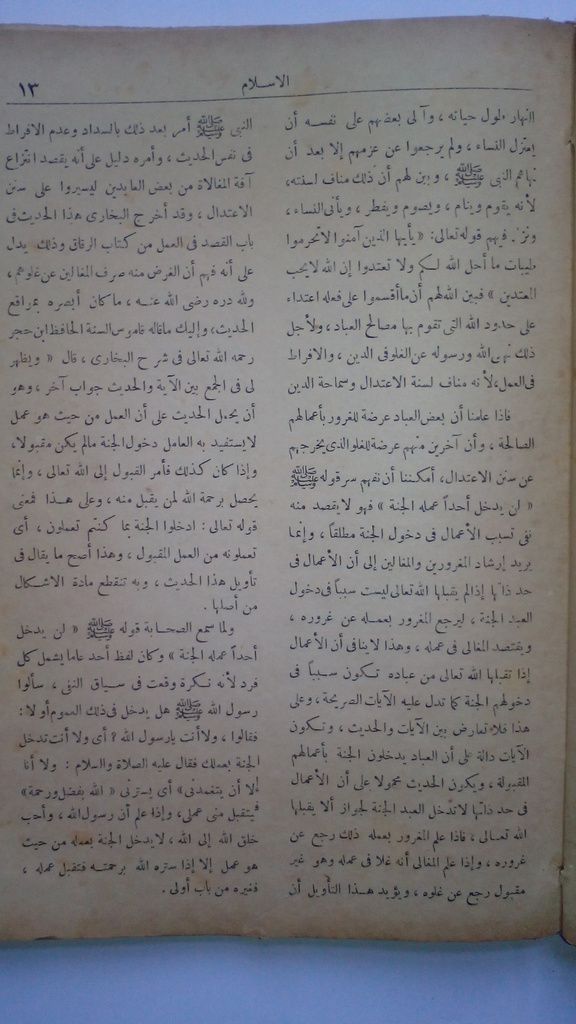 الاسلام
١٣
النهار طول حياته ، وآلى بعضهم على نفسه أن
يعتزل النساء ، ولم يرجعوا عن عزمهم إلا بعد أن
نهاهم النبى ﷺ ، وبين لهم أن ذلك مناف لسنته،
لأنه يقوم وينام ، ويصوم ويفطر ، ويأتى النساء ،
ونزل فيهم قوله تعالى: « يأيها الذين آمنوا لا تحرموا
طيبات ما أحل الله لكم ولا تعتدوا إن الله لايحب
المعتدين » فبين الله لهم أن ما أقسموا على فعله اعتداء
على حدود الله التى تقوم بها مصالح العباد، ولأجل
ذلك نهى الله ورسوله عن الغلو فى الدين ، والافراط
فى العمل، لأنه مناف لسنة الاعتدال وسماحة الدين
فاذا علمنا أن بعض العباد عرضة للغرور بأعمالهم
الصالحة ، وأن آخرين منهم عرضة للغلو الذى يخرجهم
عن سنن الاعتدال، أمكننا أن نفهم سر قوله ﷺ
« لن يدخل أحداً عمله الجنة » فهو لا يقصد منه
نفى تسبب الأعمال فى دخول الجنة مطلقاً ، وإنما
يريد إرشاد المغرورين والمغالين إلى أن الأعمال فى
حد ذاتها إذا لم يقبلها الله تعالى ليست سبباً فى دخول
العبد الجنة ، ليرجع المغرور بعمله عن غروره ،
ويقتصد المغالى فى عمله ، وهذا لاينافى أن الأعمال
إذا تقبلها الله تعالى من عباده تكون سبباً فى
دخولهم الجنة كما تدل عليه الآيات الصريحة ، وعلى
هذا فلا تعارض بين الآيات والحديث ، وتكون
الآيات دالة على أن العباد يدخلون الجنة بأعمالهم
المقبولة ، ويكون الحديث محمولا على أن الأعمال
فى حد ذاتها لاتدخل العبد الجنة لجواز ألا يقبلها
الله تعالى ، فاذا علم المغرور بعمله ذلك رجع عن
غروره ، وإذا علم المغالى أنه غلا فى عمله وهو غير
مقبول رجع عن غلوه ، ويؤيد هذا التأويل أن
النبى ﷺ أمر بعد ذلك بالسداد وعدم الافراط
فى نفس الحديث ، وأمره دليل على أنه يقصد انتزاع
آفة المغالاة من بعض العابدين ليسيروا على سنن
الاعتدال ، وقد أخرج البخارى هذا الحديث فى
باب القصد فى العمل من كتاب الرقاق وذلك يدل
على أنه فهم أن الغرض منه صرف المغالين عن غلوهم ،
ولله دره رضى الله عنه ، ما كان أبصره بمواقع
الحديث، وإليك ماقاله قاموس السنة الحافظ ابن حجر
رحمه الله تعالى فى شرح البخارى ، قال « ويظهر
لى فى الجمع بين الآية والحديث جواب آخر ، وهو
أن يحمل الحديث على أن العمل من حيث هو عمل
لايستفيد به العامل دخول الجنة مالم يكن مقبولا،
وإذا كان كذلك فأمر القبول إلى الله تعالى ، وإنما
يحصل برحمة الله لمن يقبل منه ، وعلى هذا فمعنى
قوله تعالى : ادخلوا الجنة بما كنتم تعملون ، أى
تعملونه من العمل المقبول ، وهذا أصح ما يقال فى
تأويل هذا الحديث ، وبه تنقطع مادة الاشكال
من أصلها .
ولما سمع الصحابة قوله ﷺ « لن يدخل
أحداً عمله الجنة » وكان لفظ أحد عاما يشمل كل
فرد لأنه نكرة وقعت فى سياق النفى ، سألوا
رسول الله ﷺ هل يدخل فى ذلك العموم أو لا :
فقالوا ، ولا أنت يارسول الله ؟ أى ولا أنت تدخل
الجنة بعملك فقال عليه الصلاة والسلام : ولا أنا
إلا أن يتغمدنى » أى يسترنى « الله بفضل ورحمة »
فيتقبل منى عملى، وإذا علم أن رسول الله ، وأحب
خلق الله إلى الله ، لايدخل الجنة بعمله من حيث
هو عمل إلا إذا ستره الله برحمته فتقبل عمله ،
فغيره من باب أولى .